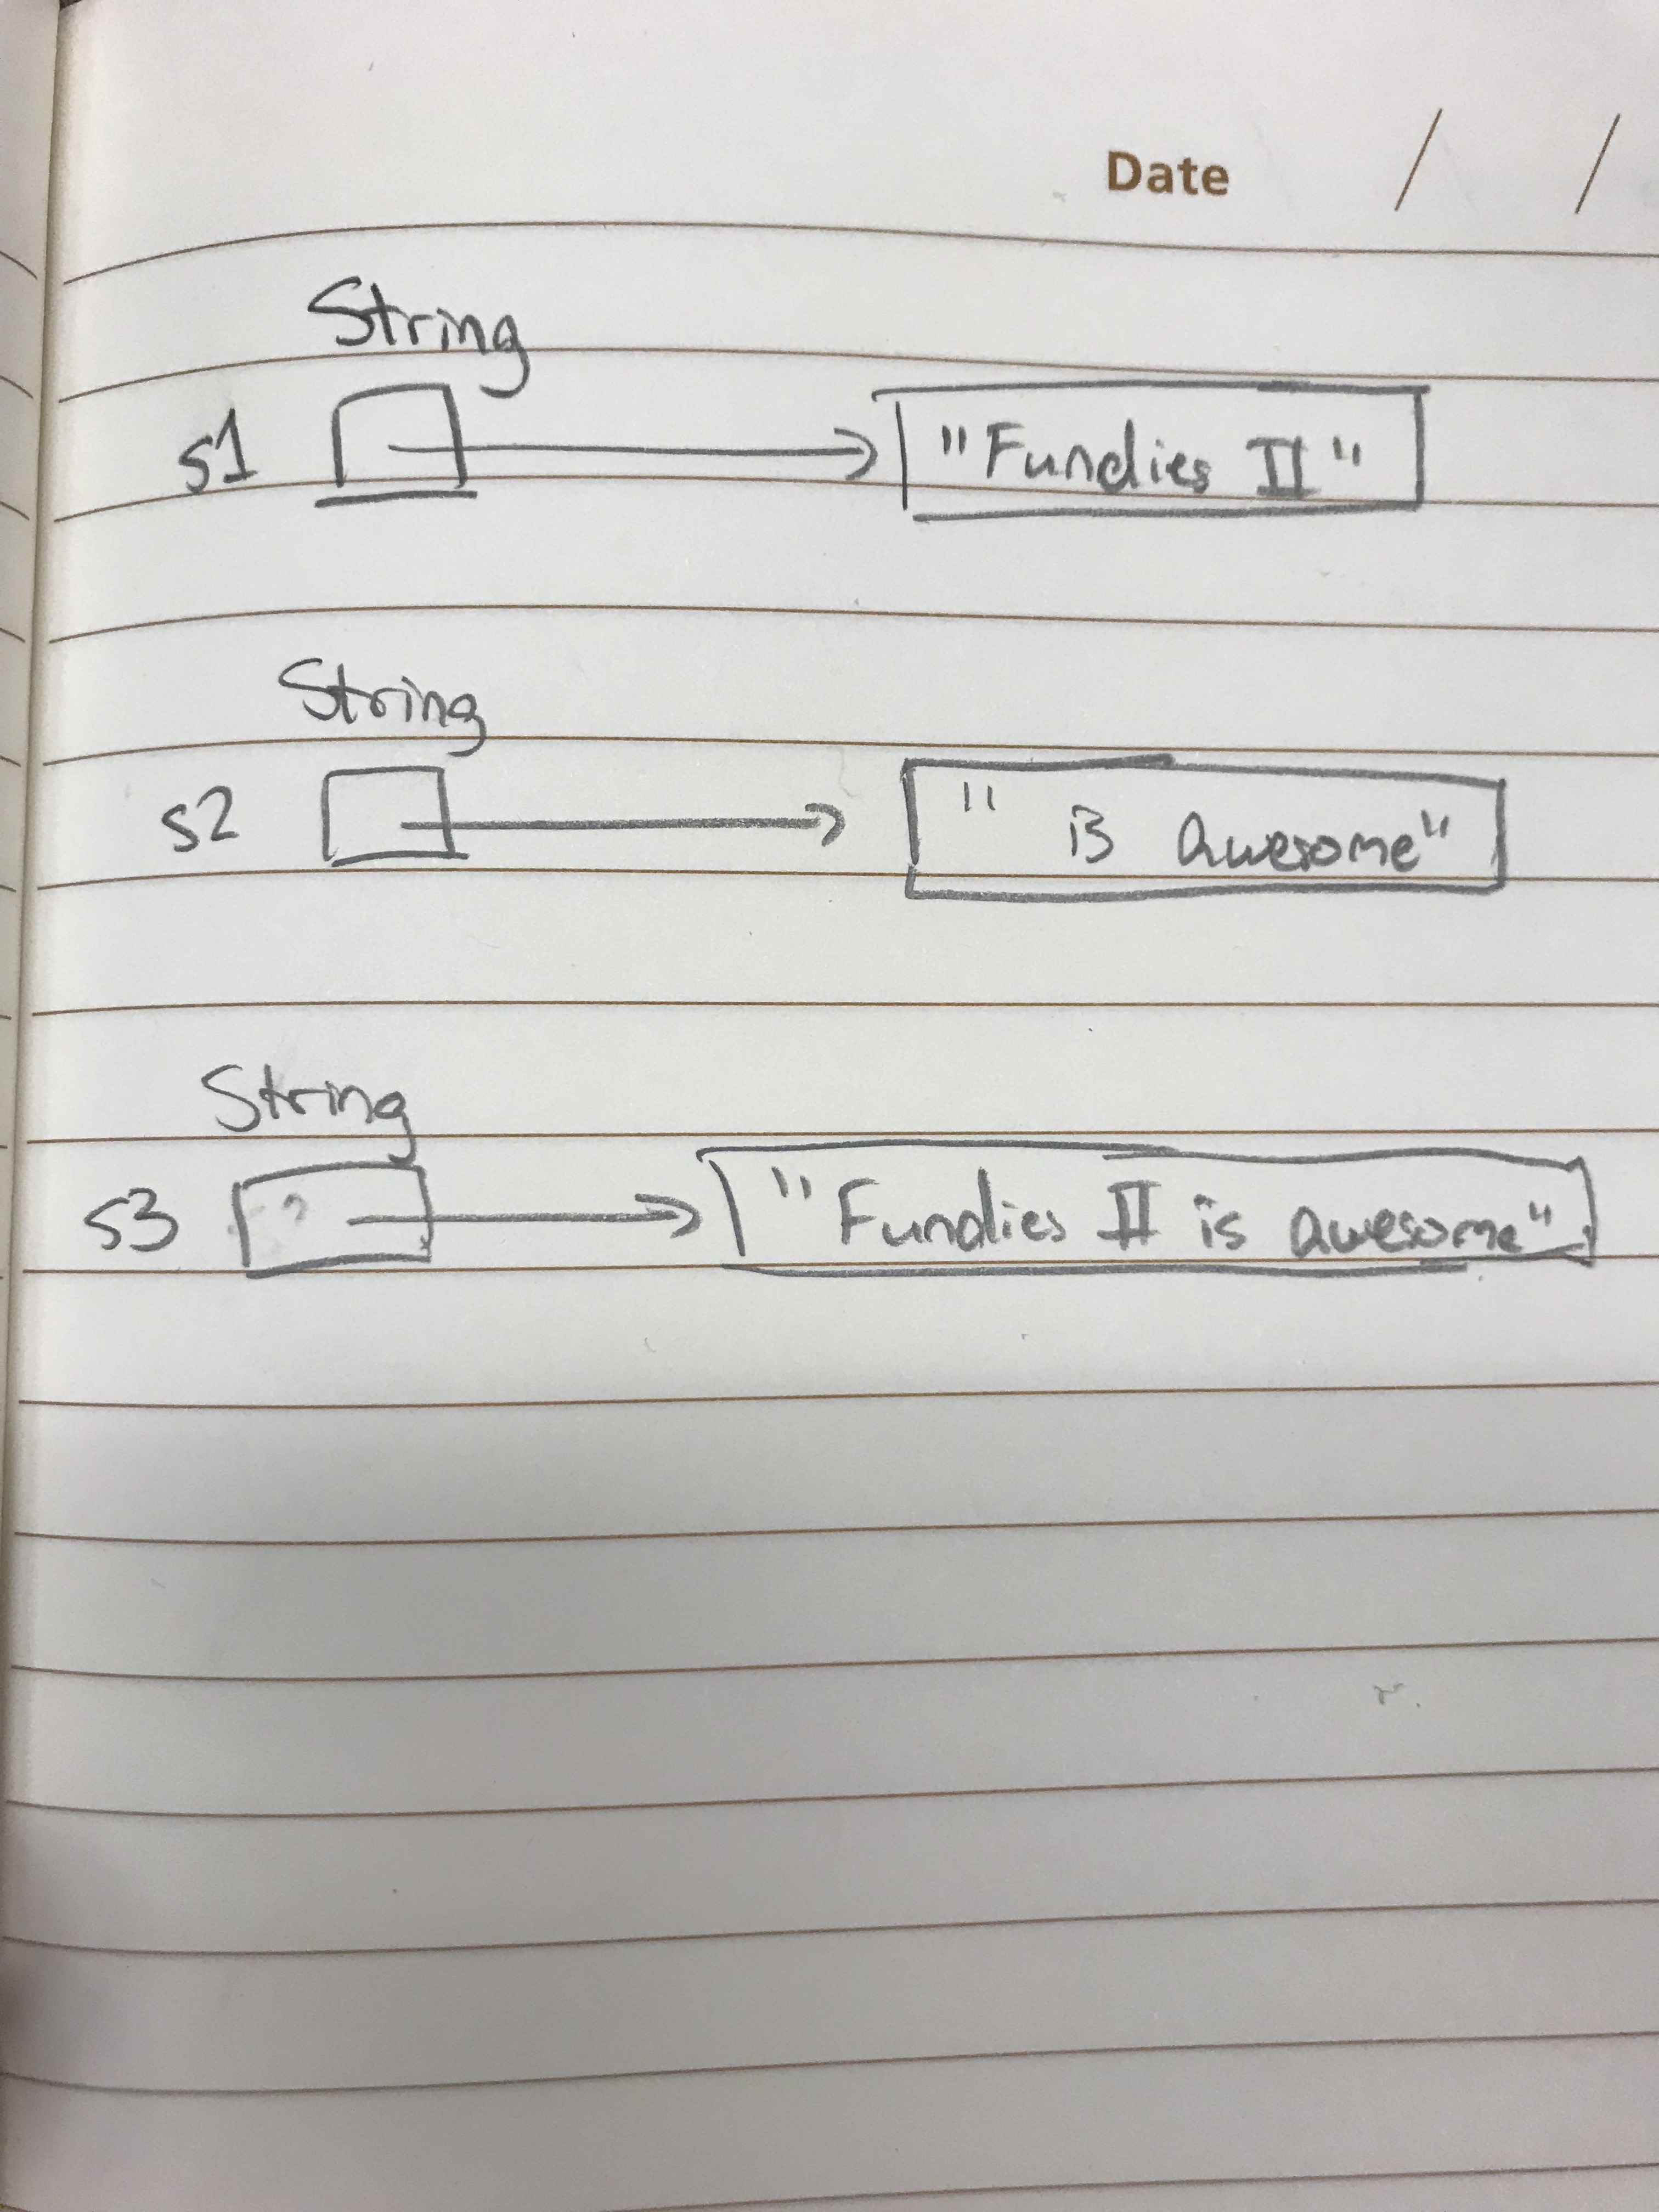 Date / /
String
s1 "Fundies II"
String
s2 " is awesome"
String
s3 "Fundies II is awesome"